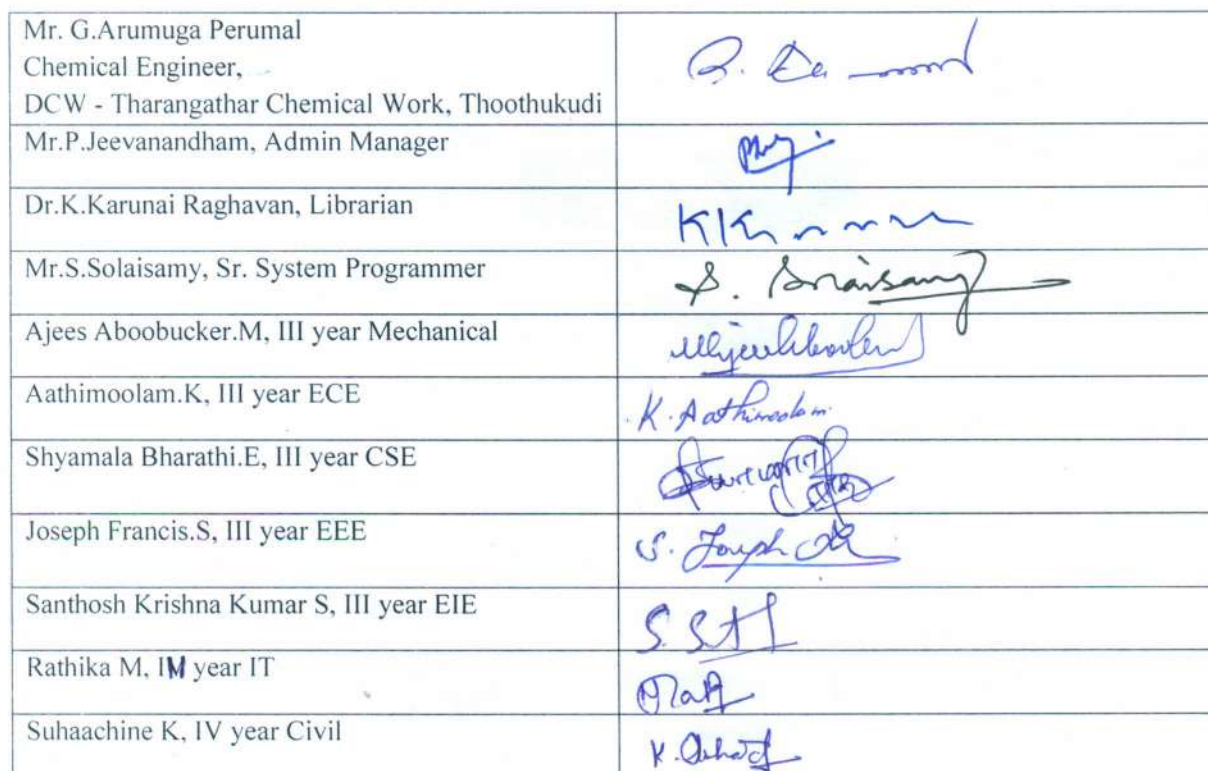 Mr. G.Arumuga Perumal
Chemical Engineer,
DCW - Tharangathar Chemical Work, Thoothukudi
Mr.P.Jeevanandham, Admin Manager
Dr.K.Karunai Raghavan, Librarian
Mr.S.Solaisamy, Sr. System Programmer
S. Solaisamy
Ajees Aboobucker.M, III year Mechanical
Aathimoolam.K, III year ECE
K. Aathimoolam
Shyamala Bharathi.E, III year CSE
Joseph Francis.S, III year EEE
S. Joseph
Santhosh Krishna Kumar S, III year EIE
Rathika M, year IT
Suhaachine K, IV year Civil